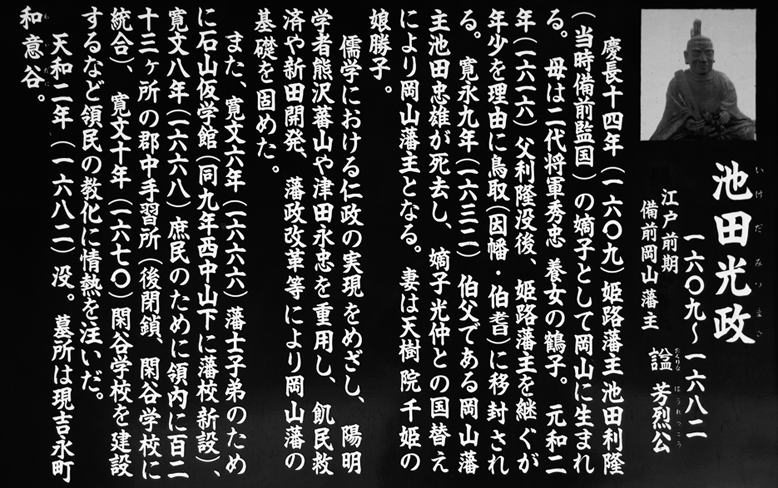 いけだみつまさ
池田光政
一六〇九～一六八二
江戸前期
備前岡山藩主
おくりな ほうれつこう
諡 芳烈公
慶長十四年（一六〇九）姫路藩主池田利隆
（当時備前監国）の嫡子として岡山に生まれ
る。母は二代将軍秀忠 養女の鶴子。元和二
年（一六一六）父利隆没後、姫路藩主を継ぐが
年少を理由に鳥取（因幡・伯耆）に移封され
る。寛永九年（一六三二）伯父である岡山藩
主池田忠雄が死去し、嫡子光仲との国替え
により岡山藩主となる。妻は天樹院千姫の
娘勝子。
儒学における仁政の実現をめざし、陽明
学者熊沢蕃山や津田永忠を重用し、飢民救
済や新田開発、藩政改革等により岡山藩の
基礎を固めた。
また、寛文六年（一六六六）藩士子弟のため
に石山仮学館（同九年西中山下に藩校新設）、
寛文八年（一六六八）庶民のために領内に百二
十三ヶ所の郡中手習所（後閉鎖、閑谷学校に
統合）、寛文十年（一六七〇）閑谷学校を建設
するなど領民の教化に情熱を注いだ。
天和二年（一六八二）没。墓所は現吉永町
和意谷。